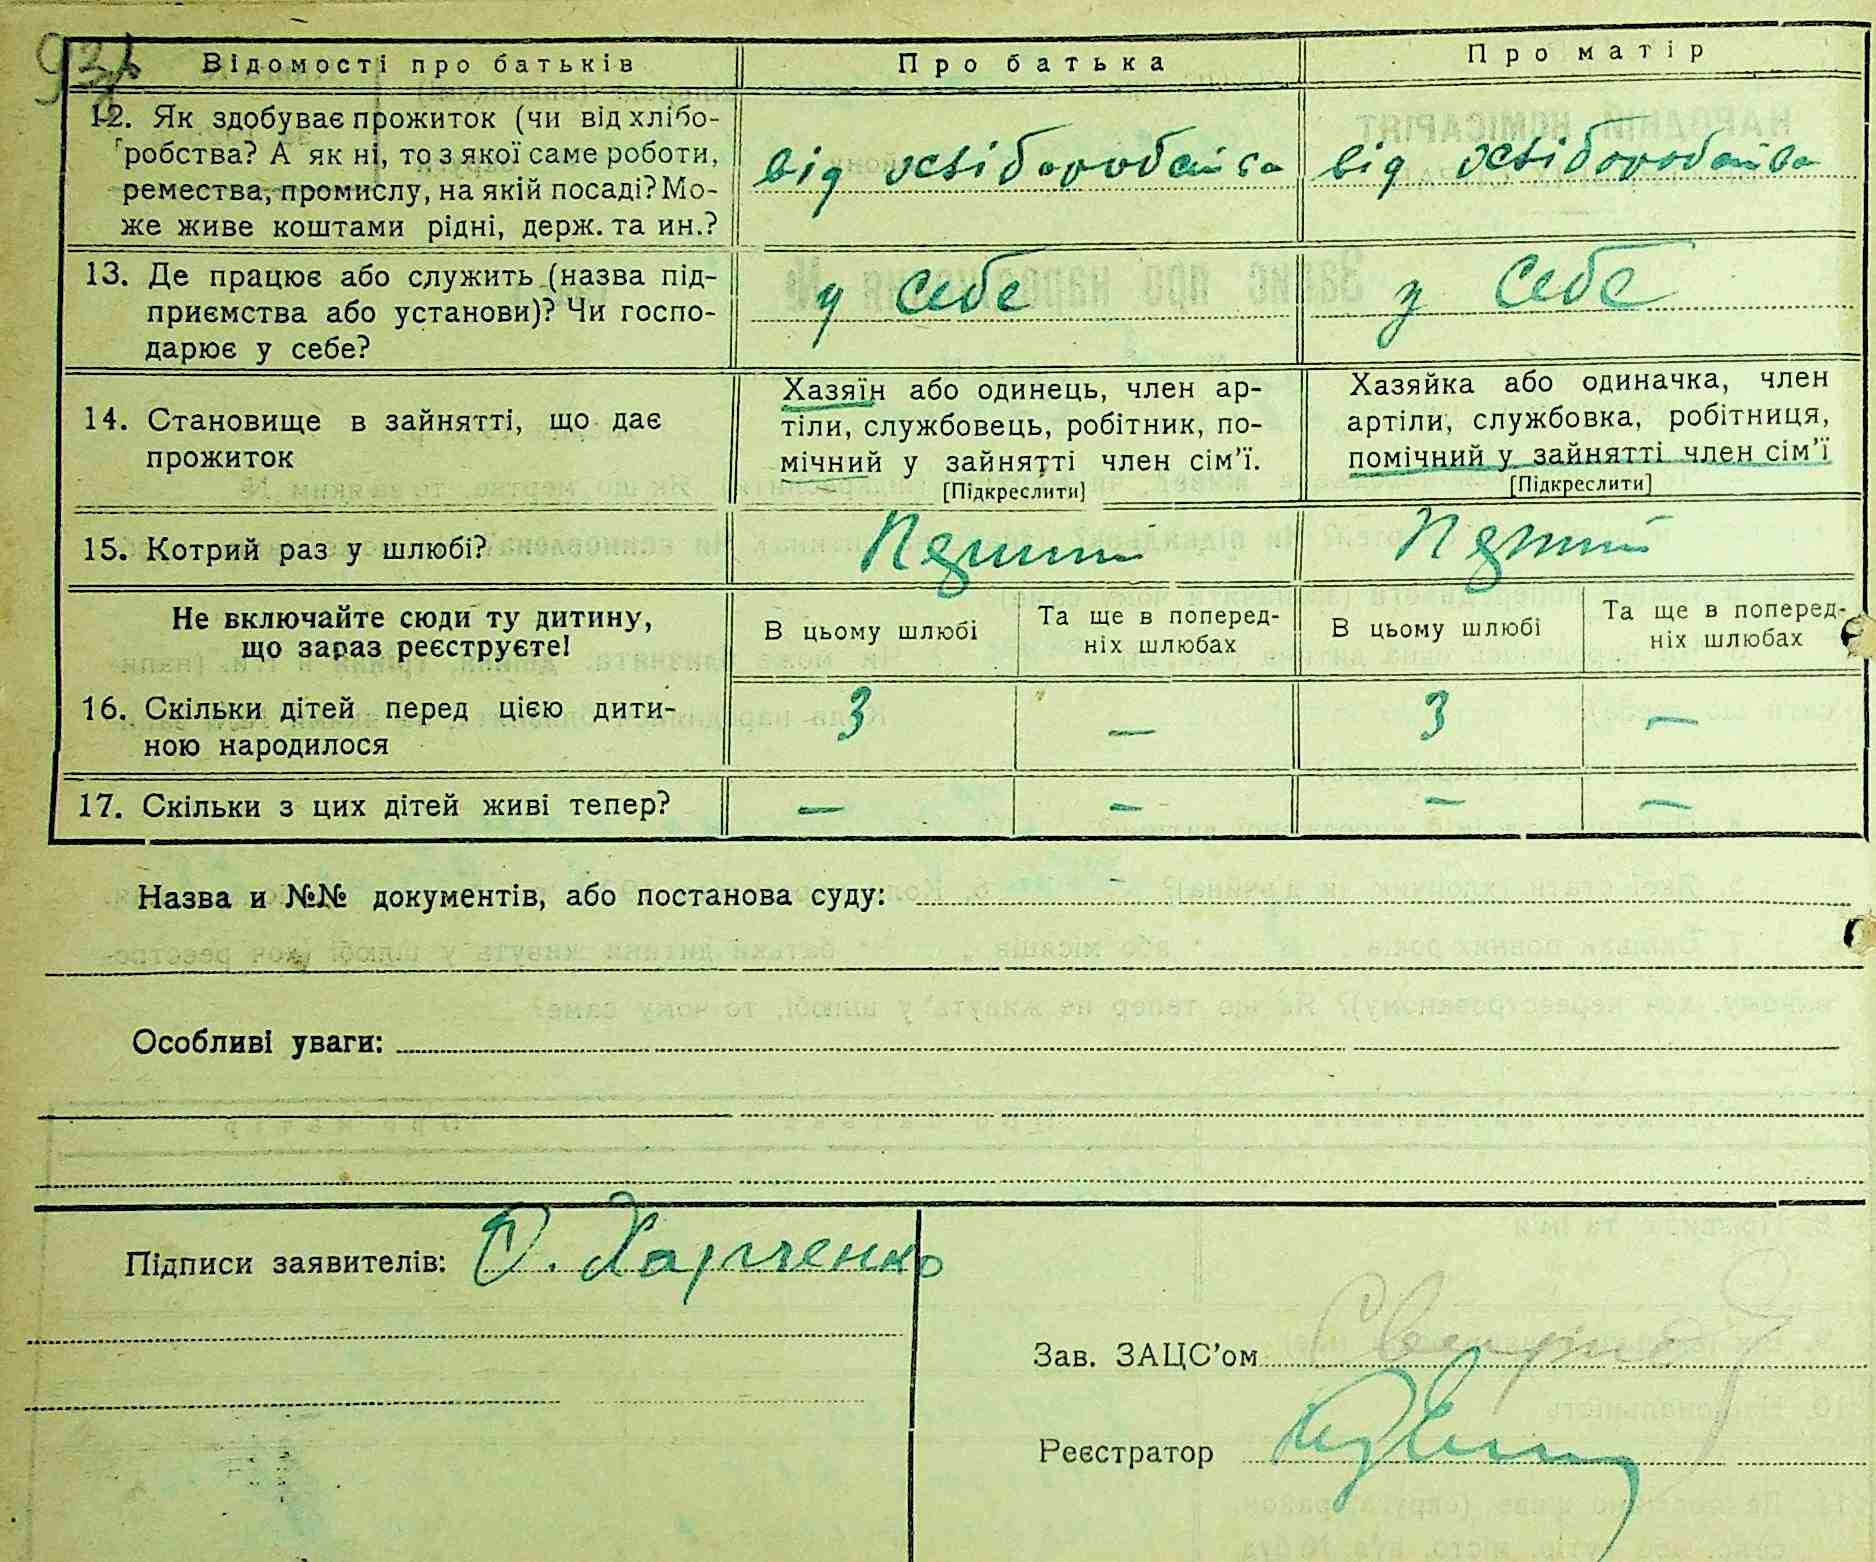 Відомості про батьків
Про батька
Про матір
12. Як здобуває прожиток (чи від хлібо-
робства? А як ні, то з якої саме роботи,
ремества, промислу, на якій посаді? Мо-
же живе коштами рідні, держ. та ин.?
від хліборобства
від хліборобства
13. Де працює або служить (назва під-
приємства або установи)? Чи госпо-
дарює у себе?
у себе
у себе
14. Становище в зайнятті, що дає
прожиток
Хазяїн або одинець, член ар-
тіли, службовець, робітник, по-
мічний у зайнятті член сім’ї.
[Підкреслити]
Хазяйка або одиначка, член
артіли, службовка, робітниця,
помічний у зайнятті член сім’ї
[Підкреслити]
15. Котрий раз у шлюбі?
Не включайте сюди ту дитину,
що зараз реєструєте!
В цьому шлюбі
Та ще в поперед-
ніх шлюбах
В цьому шлюбі
Та ще в поперед-
ніх шлюбах
16. Скільки дітей перед цією дити-
ною народилося
3
—
3
—
17. Скільки з цих дітей живі тепер?
—
—
—
—
Назва и №№ документів, або постанова суду:
Особливі уваги:
Підписи заявителів: О. Харченко
Зав. ЗАЦС’ом
Реєстратор